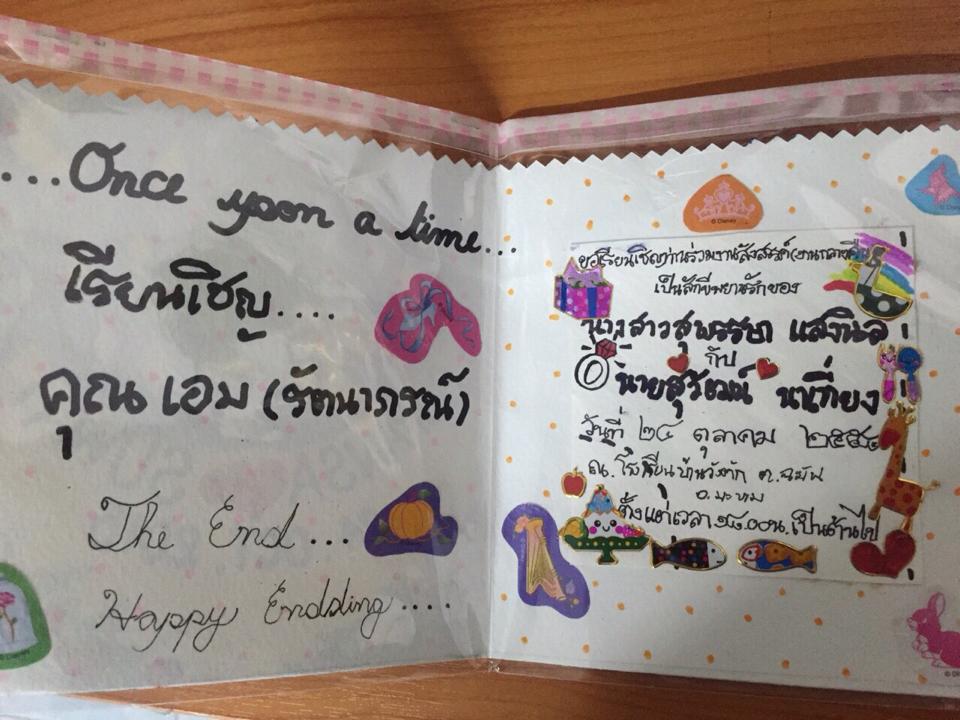 ...Once upon a time...
เรียนเชิญ....
คุณ เอม (รัตนาภรณ์)
The End...
Happy Endding....
© Disney
ขอเรียนเชิญท่านร่วมงานสังสรรค์
เป็นสักขีพยานรักของ
นางสาวสุพรรษา
กับ
นายสุวัฒน์ นาเที่ยง
วันที่ ๒๔ ตุลาคม
ณ. โรงเรียนบ้านวังกัก ต.
ตั้งแต่เวลา ๑๘.๐๐น. เป็นต้นไป